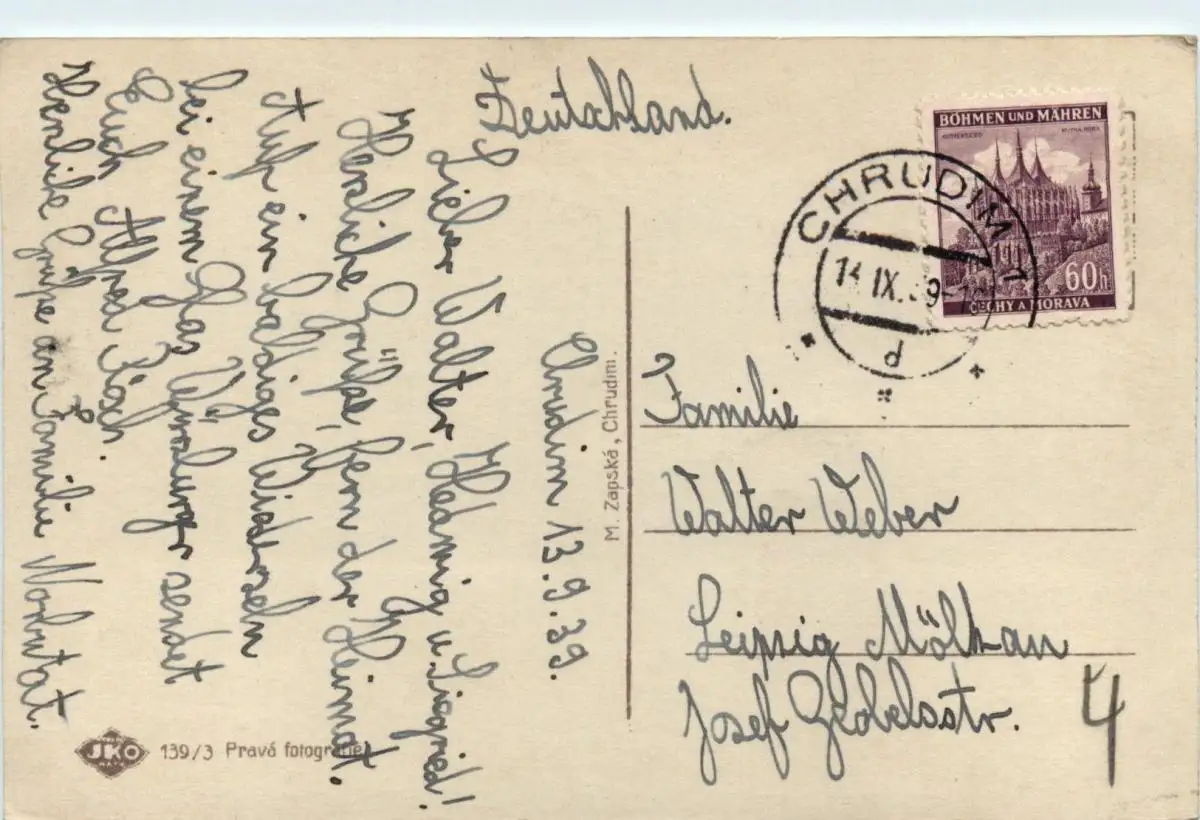 Deutschland.
Chrudim 13.9.39.
Lieber Walter, Hedwig u. Siegried!
Herliche Grüße, fern der Heimat.
Auf ein baldiges Wiedersehn
bei einem Glas Würzburger sendet
Euch Alfred
Herliche Grüße an Familie
BÖHMEN UND MÄHREN
KUTTENBERG KUTNÁ HORA
60h
ČECHY A MORAVA
CHRUDIM 1
14.IX.39
d
Familie
Walter Weber
Leipzig Mölkau
Josef Gebelsstr. 4
M. Zapská, Chrudim.
JKO
139/3 Pravá fotografie